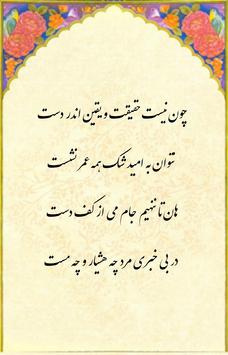 چون نیست حقیقت و یقین اندر دست
نتوان به امید شک همه عمر نشست
هان تا ننهیم جام می از کف دست
در بی خبری مرد چه هشیار و چه مست